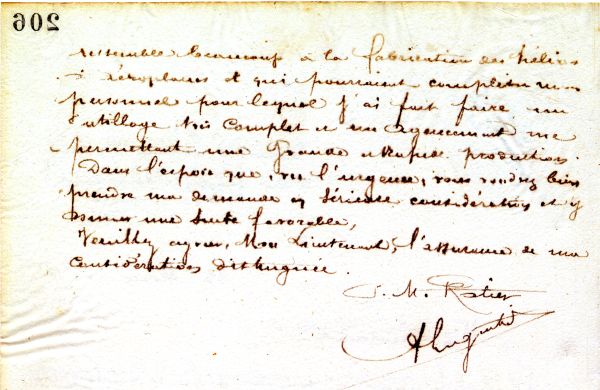 206
ressemble beaucoup à la fabrication des hélices
à aéroplanes et qui pourraient compléter mon
personnel pour lequel j'ai fait faire un
outillage très complet et un agencement me
permettant une grande et rapide production.
Dans l'espoir que, vu l'urgence, vous voudrez bien
prendre ma demande en sérieuse considération et y
donner une suite favorable,
Veuillez agréer, Mon Lieutenant, l'assurance de ma
considération distinguée.
M. Ratier